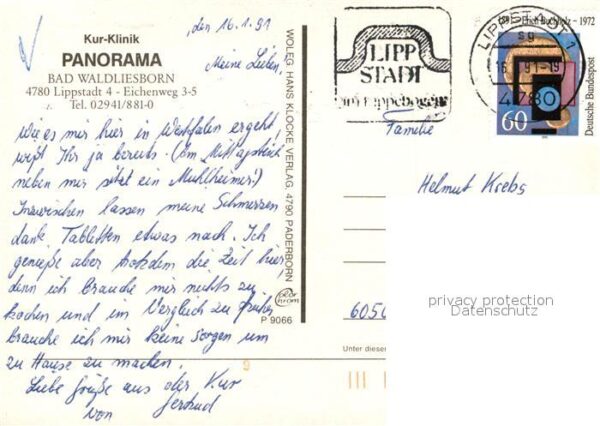 den 16.1.91
Kur-Klinik
PANORAMA
BAD WALDLIESBORN
4780 Lippstadt 4 - Eichenweg 3-5
Tel. 02941/881-0
Meine Lieben,
Wie es mir hier in Westfalen ergeht,
wißt Ihr ja bereits. (Am Mittagstisch
neben mir sitzt ein Mühlheimer!)
Inzwischen lassen meine Schmerzen
dank Tabletten etwas nach. Ich
genieße aber trotzdem die Zeit hier,
denn ich brauche mir nichts zu
kochen und im Vergleich zu früher
brauche ich mir keine Sorgen um
zu Hause zu machen.
Liebe Grüße aus der Kur
von Gertrud
WOLEG HANS KLOCKE VERLAG, 4790 PADERBORN
color chrom
P 9066
LIPP
STADT
am Lippebogen
LIPPSTADT 1
sg
16. 91-19
4780
1891 Erich Buchholz - 1972
Deutsche Bundespost
60
Familie
Helmut Krebs
6050
Unter diese
9
privacy protection
Datenschutz